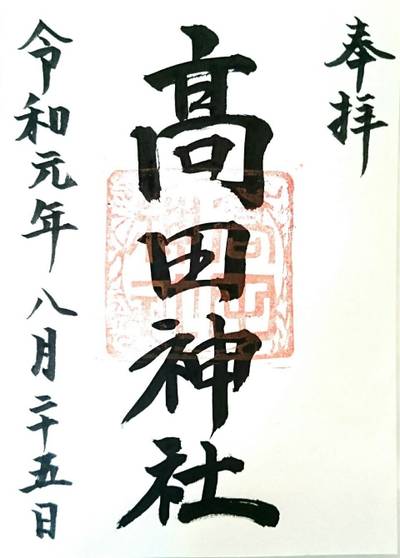 奉拝
高田神社
令和元年八月二十五日